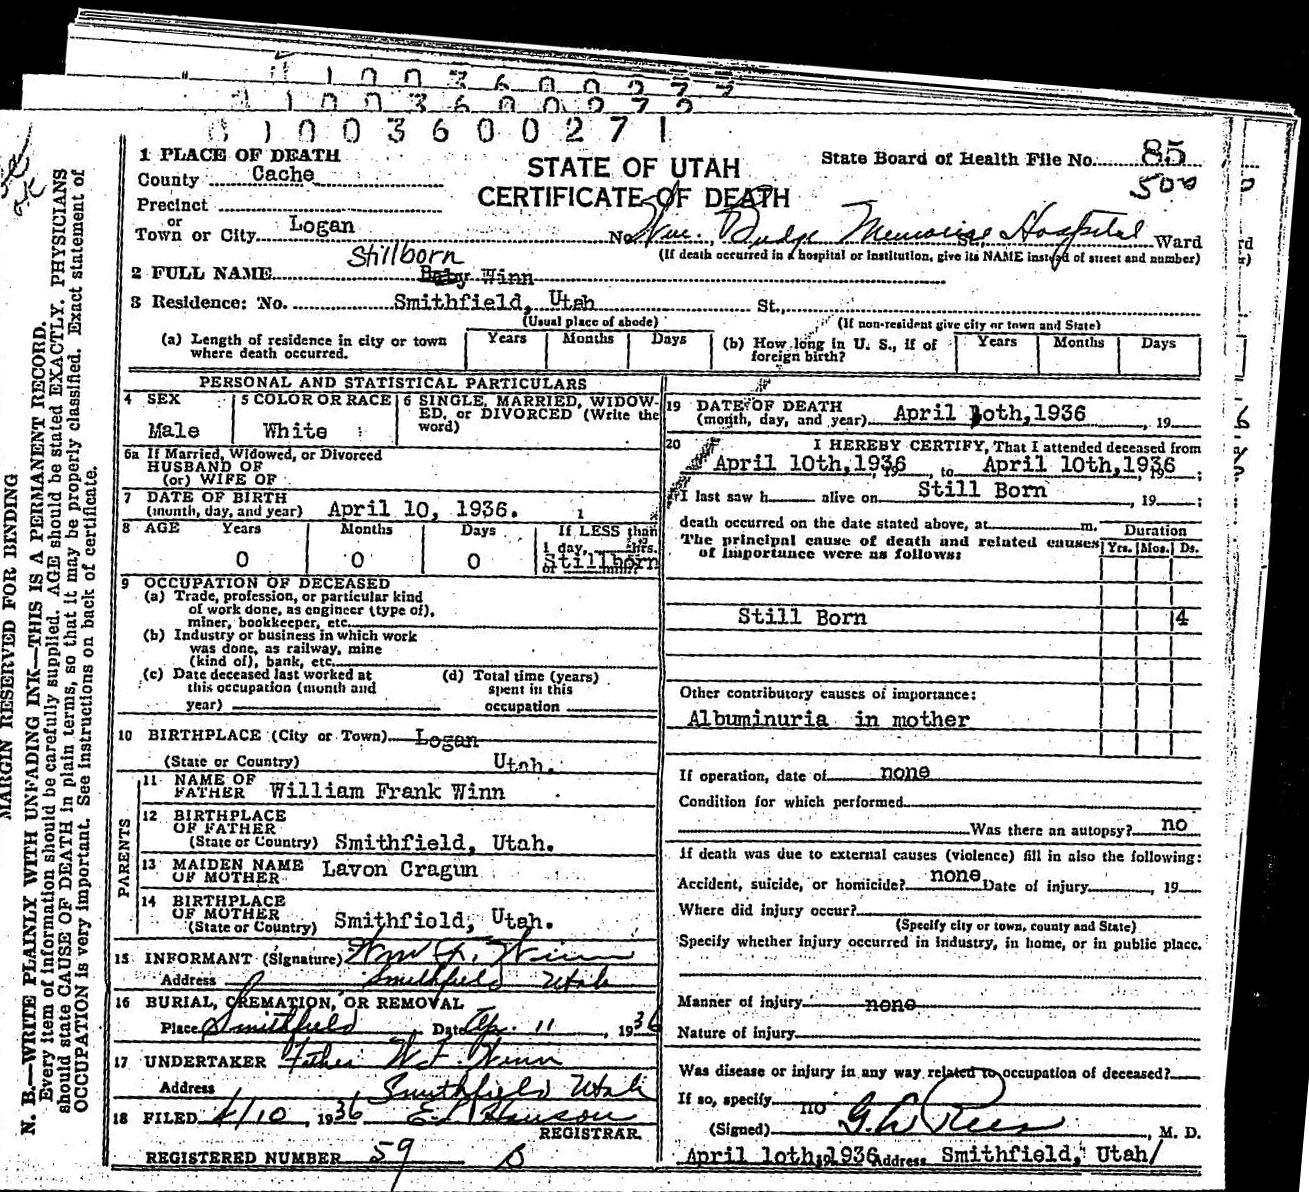 1003600277
1003600272
01003600271
1 PLACE OF DEATH
County Cache
STATE OF UTAH
CERTIFICATE OF DEATH
State Board of Health File No. 85
500
Precinct
or
Town or City Logan No. Wm. Budge Memorial St., Hospital Ward
(If death occurred in a hospital or institution, give its NAME instead of street and number)
Stillborn
2 FULL NAME Baby Winn
3 Residence: No. Smithfield, Utah St.,
(Usual place of abode) (If non-resident give city or town and State)
(a) Length of residence in city or town where death occurred. Years Months Days
(b) How long in U. S., if of foreign birth? Years Months Days
PERSONAL AND STATISTICAL PARTICULARS
4 SEX Male
5 COLOR OR RACE White
6 SINGLE, MARRIED, WIDOW-
ED, or DIVORCED (Write the
word)
6a If Married, Widowed, or Divorced
HUSBAND OF
(or) WIFE OF
7 DATE OF BIRTH
(month, day, and year) April 10, 1936.
8 AGE Years Months Days If LESS than
1 day, hrs.
0 0 0 Stillborn
or min?
9 OCCUPATION OF DECEASED
(a) Trade, profession, or particular kind
of work done, as engineer (type of),
miner, bookkeeper, etc.
(b) Industry or business in which work
was done, as railway, mine
(kind of), bank, etc.
(c) Date deceased last worked at
this occupation (month and
year)
(d) Total time (years)
spent in this
occupation
10 BIRTHPLACE (City or Town) Logan
(State or Country) Utah.
PARENTS
11 NAME OF
FATHER William Frank Winn
12 BIRTHPLACE
OF FATHER
(State or Country) Smithfield, Utah.
13 MAIDEN NAME
OF MOTHER Lavon Cragun
14 BIRTHPLACE
OF MOTHER
(State or Country) Smithfield, Utah.
15 INFORMANT (Signature) Wm F. Winn
Address Smithfield Utah
16 BURIAL, CREMATION, OR REMOVAL
Place Smithfield, Date Ap. 11, 1936
17 UNDERTAKER Father W.F. Winn
Address Smithfield Utah
18 FILED 4/10, 1936 E L Hanson
REGISTRAR.
REGISTERED NUMBER 59 B
19 DATE OF DEATH
(month, day, and year) April 10th, 1936, 19
20 I HEREBY CERTIFY, That I attended deceased from
April 10th, 1936, 19, to April 10th, 1936, 19;
I last saw h alive on Still Born, 19;
death occurred on the date stated above, at m.
The principal cause of death and related causes
of importance were as follows:
Duration
Yrs. Mos. Ds.
Still Born 4
Other contributory causes of importance:
Albuminuria in mother
If operation, date of none
Condition for which performed
Was there an autopsy? no
If death was due to external causes (violence) fill in also the following:
Accident, suicide, or homicide? none Date of injury, 19
Where did injury occur?
(Specify city or town, county and State)
Specify whether injury occurred in industry, in home, or in public place.
Manner of injury none
Nature of injury
Was disease or injury in any way related to occupation of deceased?
If so, specify no
(Signed) G. L. Rees, M. D.
April 10th, 1936 Address Smithfield, Utah/
MARGIN RESERVED FOR BINDING
N. B.—WRITE PLAINLY WITH UNFADING INK—THIS IS A PERMANENT RECORD.
Every item of information should be carefully supplied. AGE should be stated EXACTLY. PHYSICIANS
should state CAUSE OF DEATH in plain terms, so that it may be properly classified. Exact statement of
OCCUPATION is very important. See instructions on back of certificate.